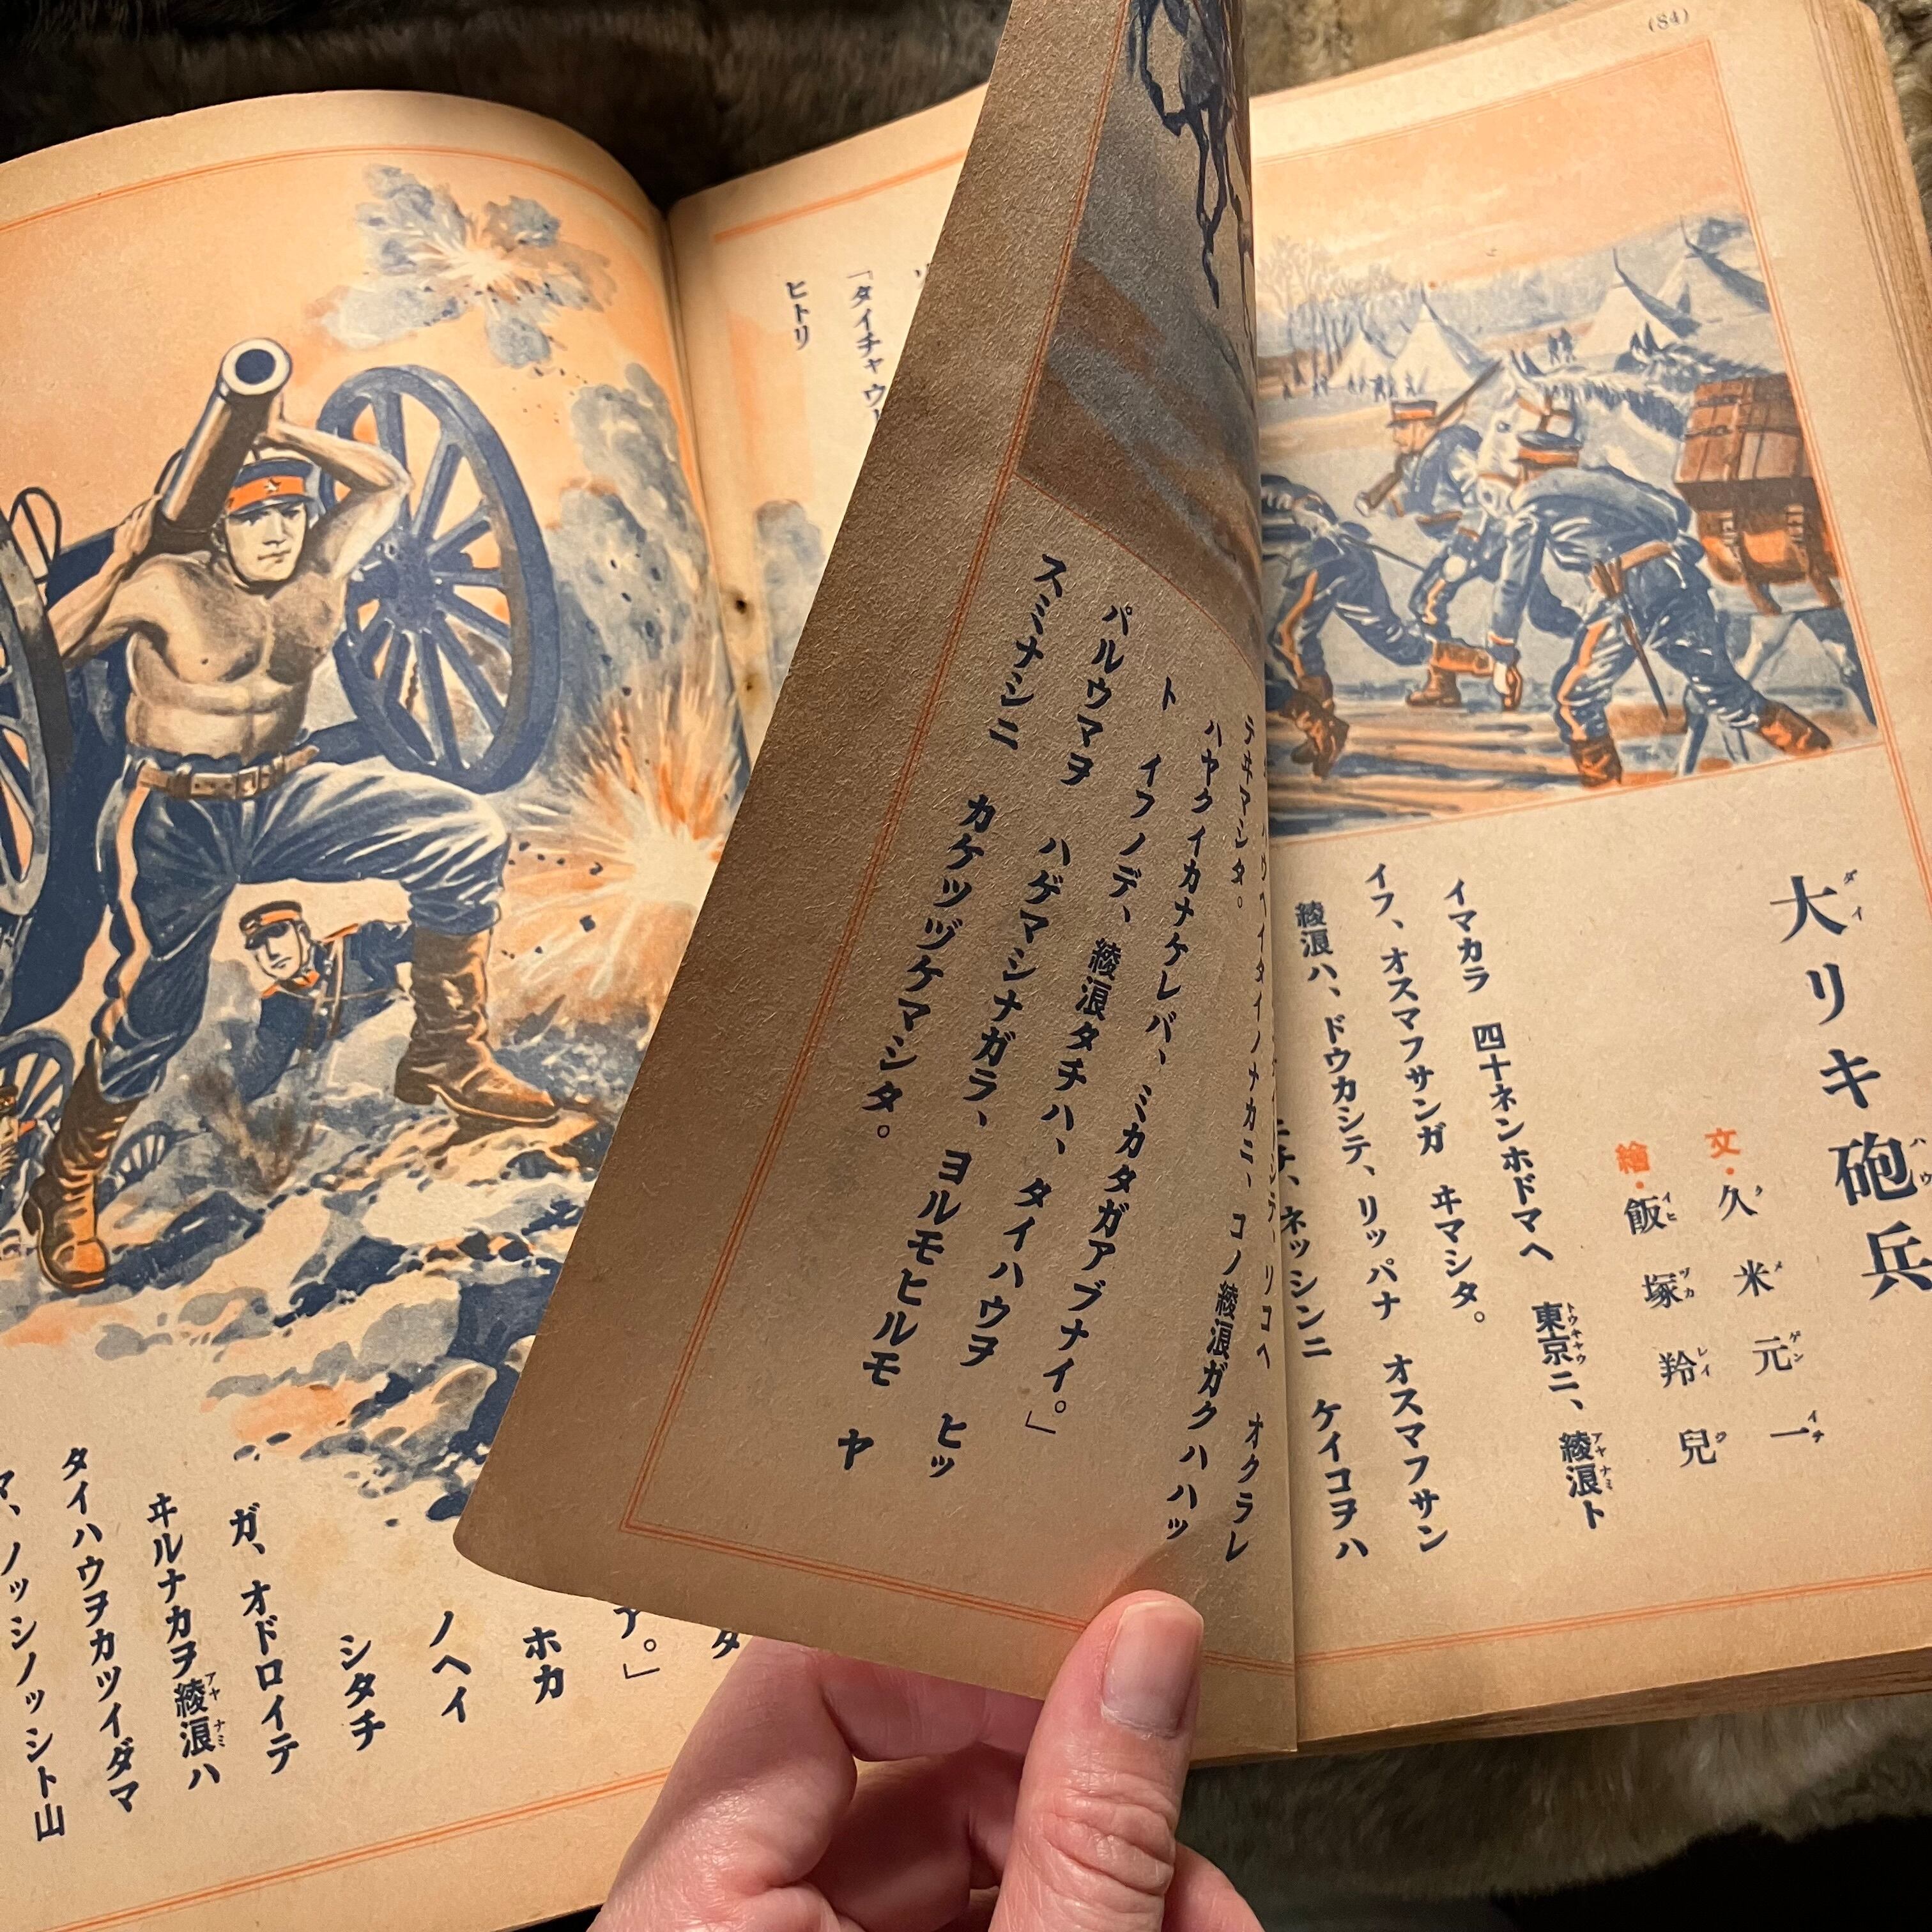 (84)
大リキ砲兵
ダイ
ハウ
文・久米元一
ク メ ゲン イチ
繪・飯塚羚兒
イヒ ヅカ レイ ジ
イマカラ 四十ネンホドマヘ 東京ニ、綾浪ト
トウキヤウ
アヤナミ
イフ、オスマフサンガ ヰマシタ。
綾浪ハ、ドウカシテ、リッパナ オスマフサン
ネッシンニ ケイコヲハ
オクラレ
テヰマシタ。
コノ綾浪ガクハハッ
ハヤクイカナケレバ、ミカタガアブナイ。」
ト イフノデ、綾浪タチハ、タイハウヲ ヒッ
パルウマヲ ハゲマシナガラ、ヨルモヒルモ ヤ
スミナシニ カケツヅケマシタ。
「タイチャウ
ヒトリ
ア。」
ホカ
ノヘイ
シタチ
ガ、オドロイテ
ヰルナカヲ綾浪ハ
アヤナミ
タイハウヲカツイダマ
マ、ノッシノッシト山